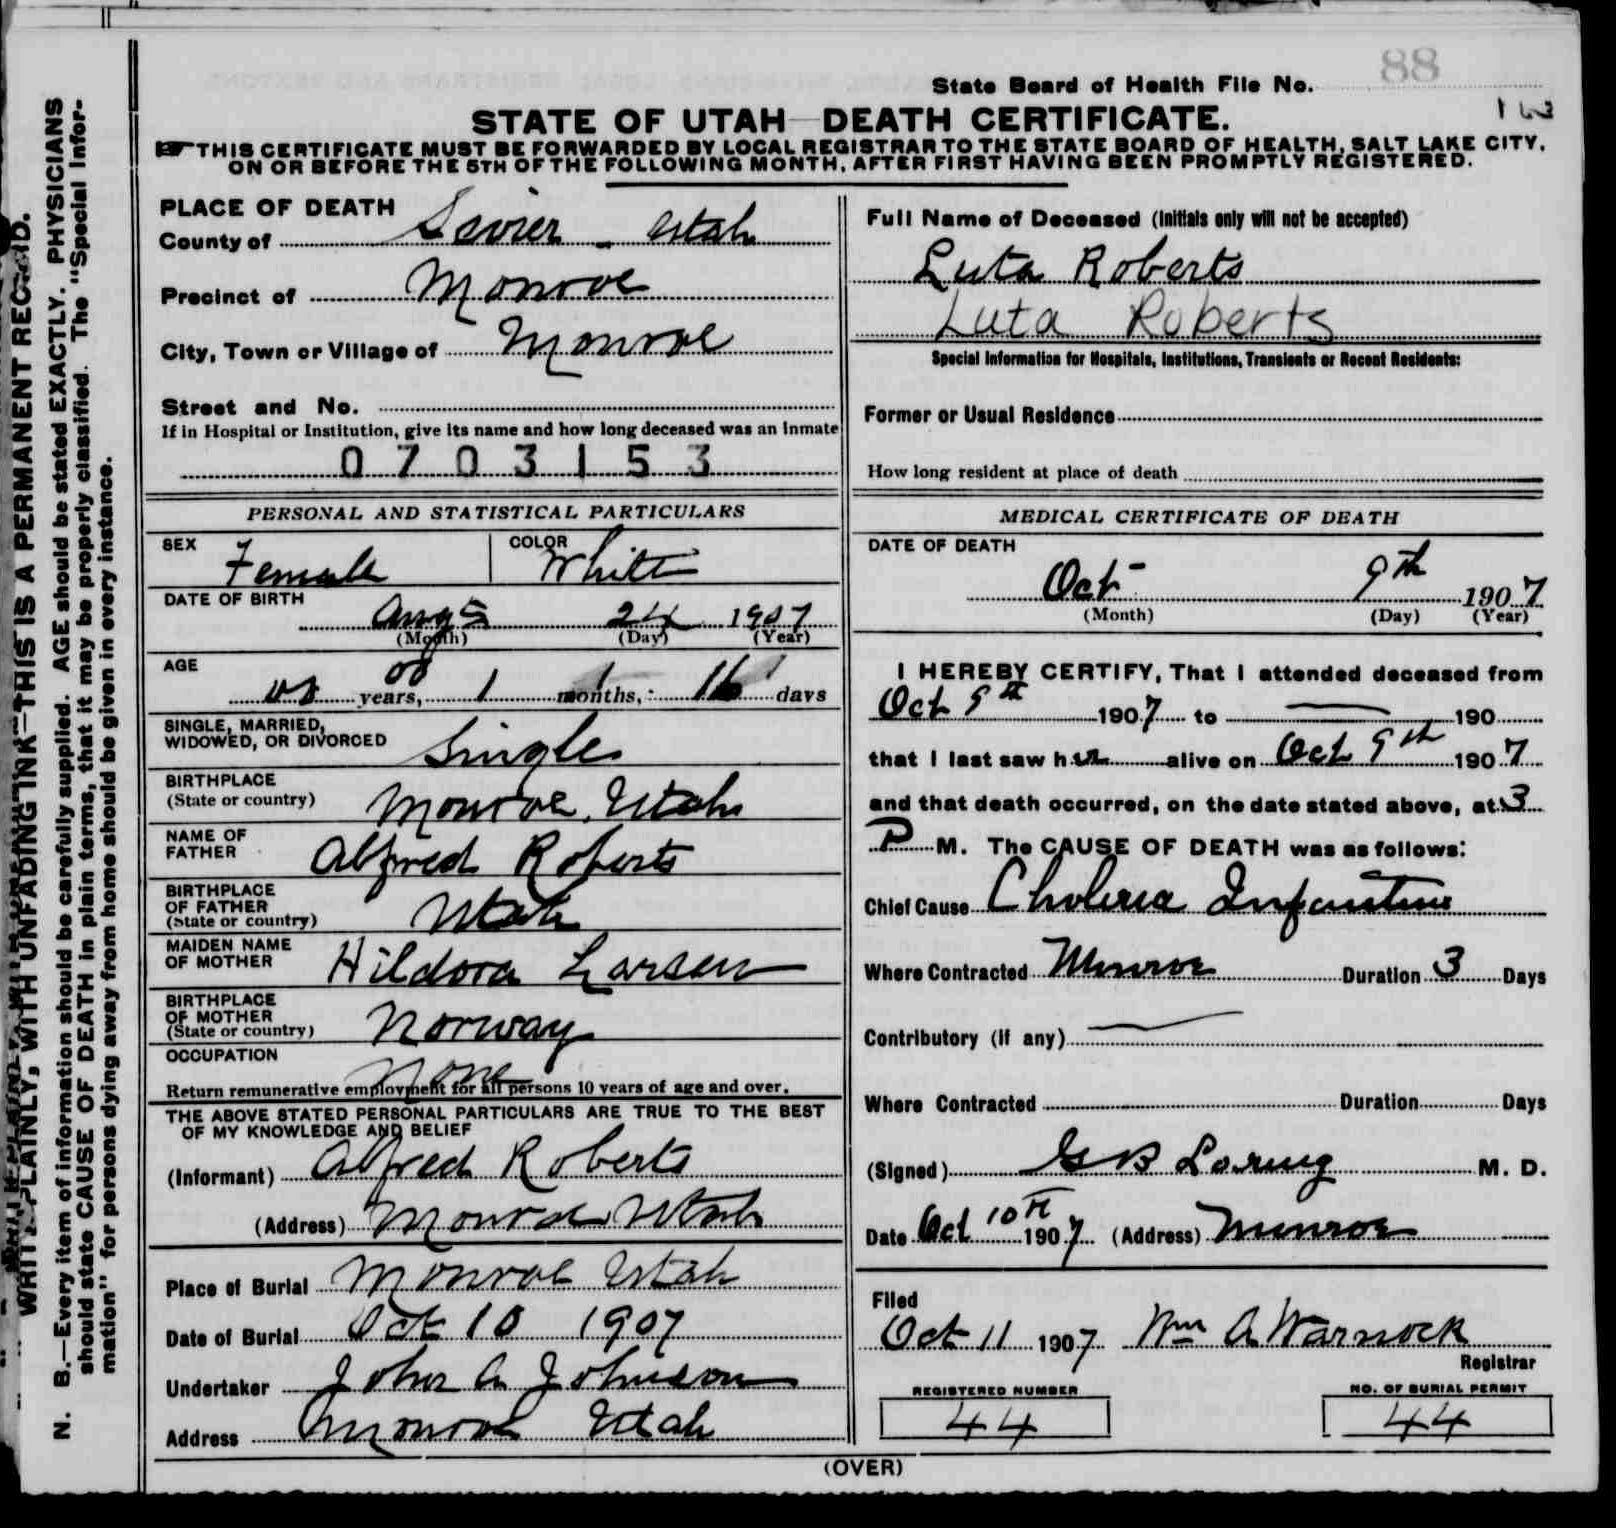 88
State Board of Health File No.
STATE OF UTAH—DEATH CERTIFICATE.
THIS CERTIFICATE MUST BE FORWARDED BY LOCAL REGISTRAR TO THE STATE BOARD OF HEALTH, SALT LAKE CITY,
ON OR BEFORE THE 5TH OF THE FOLLOWING MONTH, AFTER FIRST HAVING BEEN PROMPTLY REGISTERED.
WRITE PLAINLY, WITH UNFADING INK—THIS IS A PERMANENT RECORD.
N. B.—Every item of information should be carefully supplied. AGE should be stated EXACTLY. PHYSICIANS
should state CAUSE OF DEATH in plain terms, that it may be properly classified. The "Special Infor-
mation" for persons dying away from home should be given in every instance.
PLACE OF DEATH
County of Sevier - Utah
Precinct of Monroe
City, Town or Village of Monroe
Street and No.
If in Hospital or Institution, give its name and how long deceased was an Inmate
0703153
PERSONAL AND STATISTICAL PARTICULARS
SEX Female COLOR White
DATE OF BIRTH Aug 24 1907
(Month) (Day) (Year)
AGE
00 years, 1 months, 16 days
SINGLE, MARRIED,
WIDOWED, OR DIVORCED Single
BIRTHPLACE
(State or country) Monroe, Utah
NAME OF
FATHER Alfred Roberts
BIRTHPLACE
OF FATHER
(State or country) Utah
MAIDEN NAME
OF MOTHER Hildora Larsen
BIRTHPLACE
OF MOTHER
(State or country) Norway
OCCUPATION None
Return remunerative employment for all persons 10 years of age and over.
THE ABOVE STATED PERSONAL PARTICULARS ARE TRUE TO THE BEST
OF MY KNOWLEDGE AND BELIEF
(Informant) Alfred Roberts
(Address) Monroe Utah
Place of Burial Monroe Utah
Date of Burial Oct 10 1907
Undertaker John A Johnson
Address Monroe Utah
Full Name of Deceased (Initials only will not be accepted)
Luta Roberts
Luta Roberts
Special Information for Hospitals, Institutions, Transients or Recent Residents:
Former or Usual Residence
How long resident at place of death
MEDICAL CERTIFICATE OF DEATH
DATE OF DEATH
Oct 9th 1907
(Month) (Day) (Year)
I HEREBY CERTIFY, That I attended deceased from
Oct 9th 1907 to — 190
that I last saw her alive on Oct 9th 1907
and that death occurred, on the date stated above, at 3
P M. The CAUSE OF DEATH was as follows:
Chief Cause Choleria Infantum
Where Contracted Monroe Duration 3 Days
Contributory (if any) —
Where Contracted Duration Days
(Signed) G B Loring M. D.
Date Oct 10th 1907 (Address) Monroe
Filed
Oct 11 1907 Wm A Warnock
Registrar
REGISTERED NUMBER
44
NO. OF BURIAL PERMIT
44
(OVER)